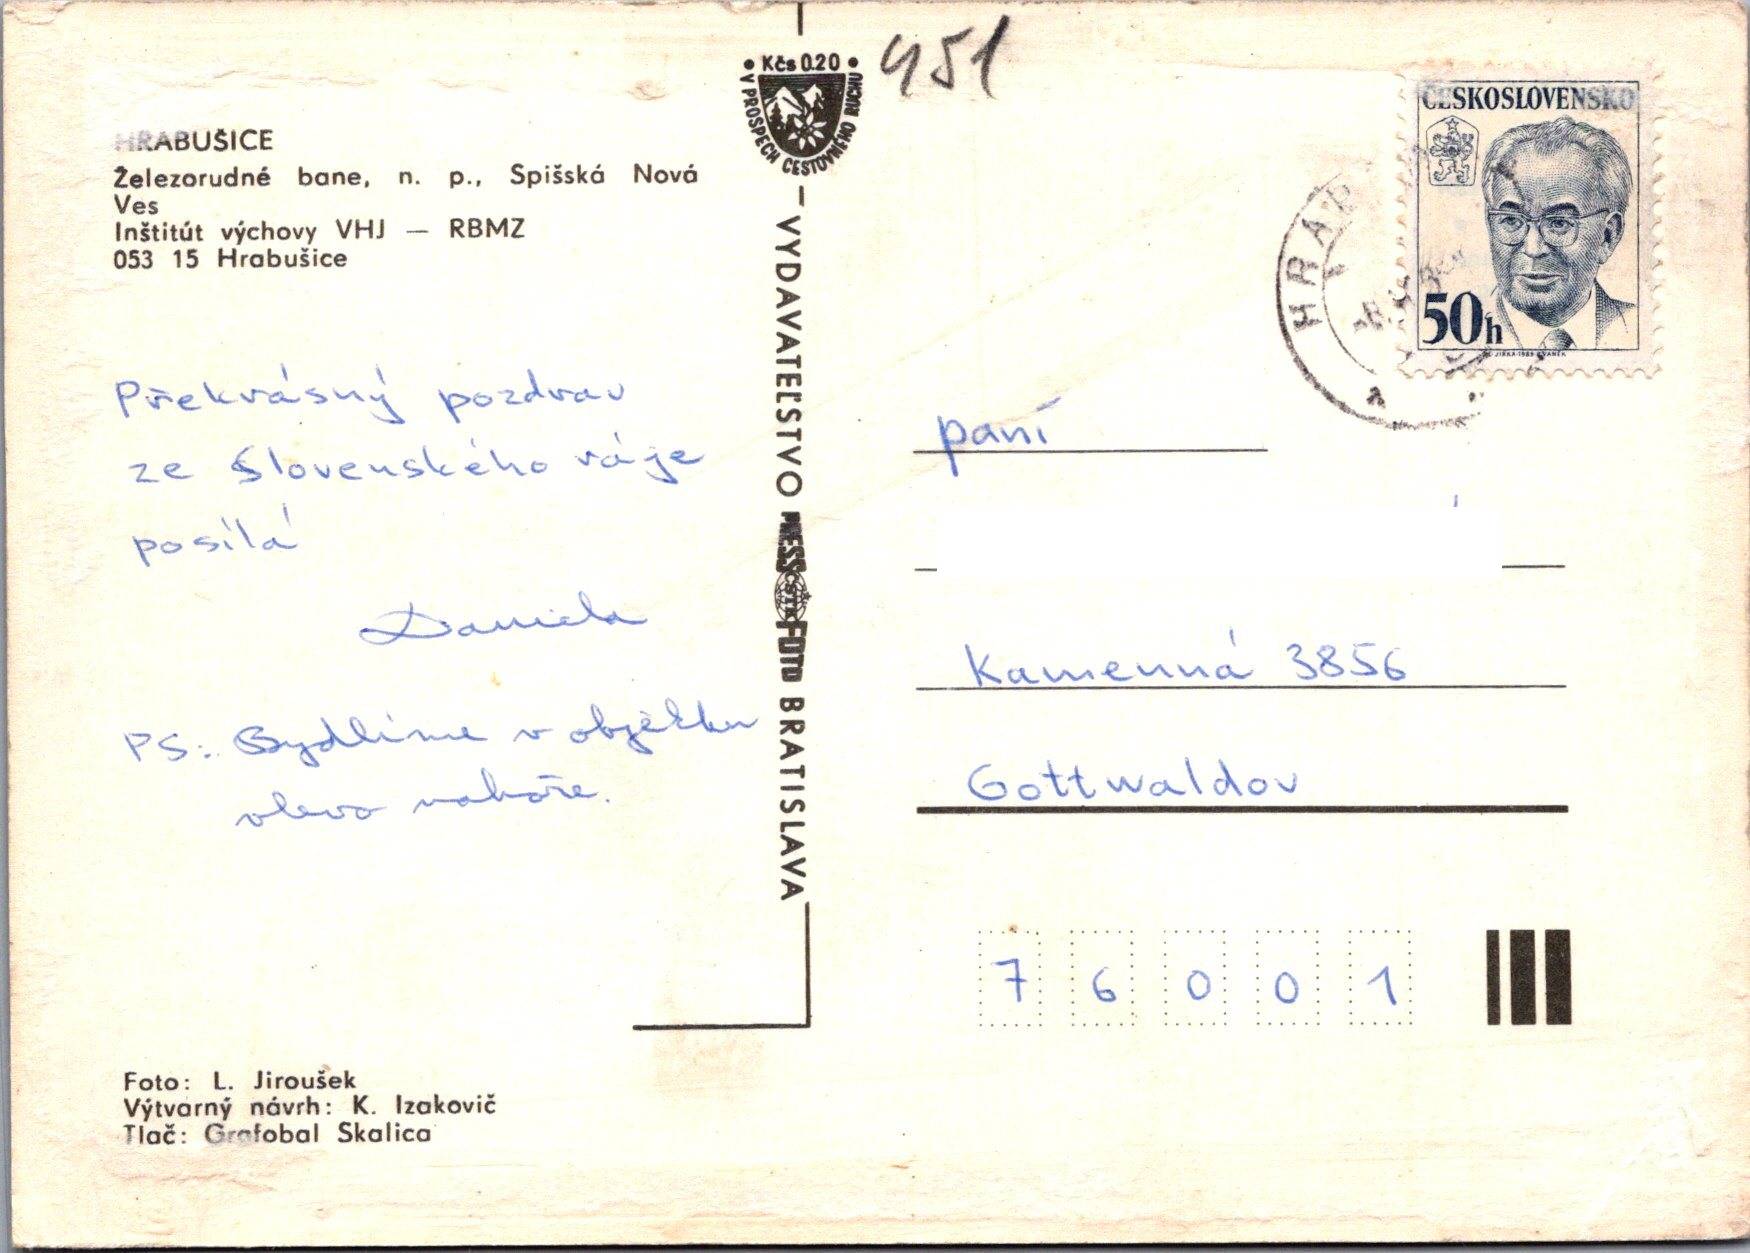 HRABUŠICE
Železorudné bane, n. p., Spišská Nová
Ves
Inštitút výchovy VHJ — RBMZ
053 15 Hrabušice
Překrásný pozdrav
ze Slovenského ráje
posílá
Daniela
PS: Bydlíme v objektu
vlevo nahoře.
Foto: L. Jiroušek
Výtvarný návrh: K. Izakovič
Tlač: Grafobal Skalica
Kčs 0.20
V PROSPECH CESTOVNÉHO RUCHU
VYDAVATEĽSTVO PRESSFOTO BRATISLAVA
ČSTK
451
ČESKOSLOVENSKO
50h
HRAB
paní
Kamenná 3856
Gottwaldov
76001